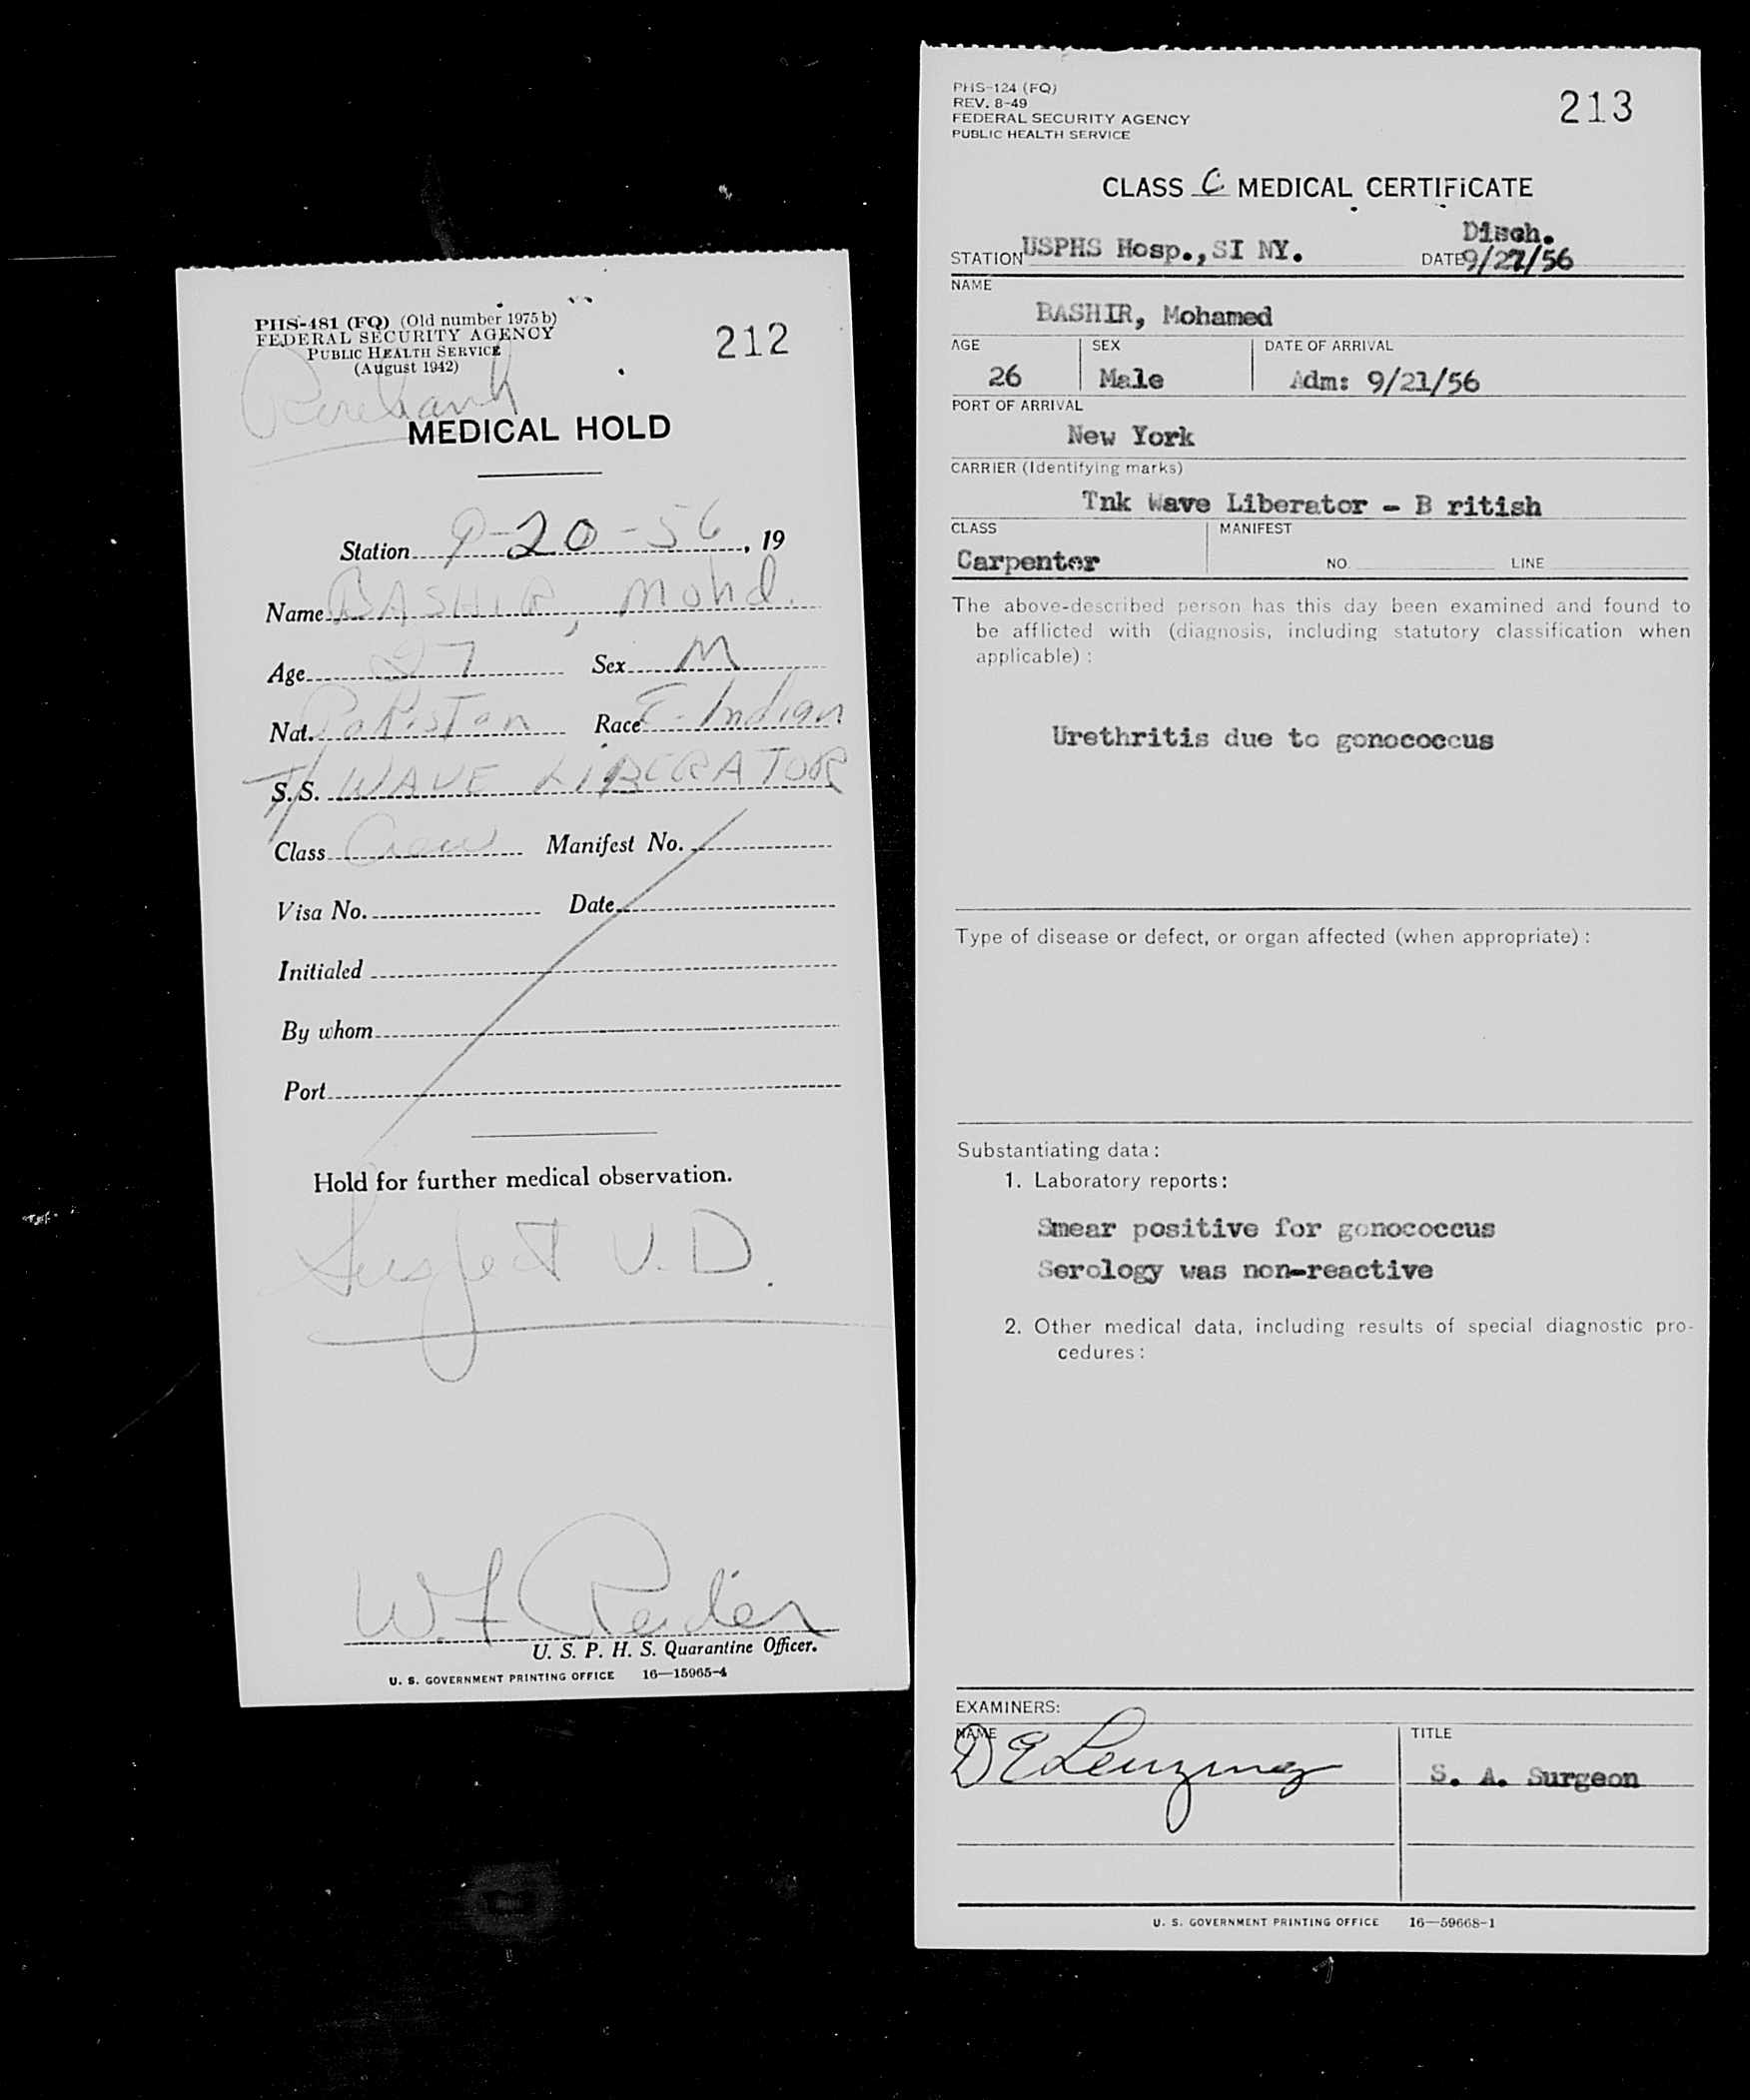 PHS-481 (FQ) (Old number 1975b)
FEDERAL SECURITY AGENCY
PUBLIC HEALTH SERVICE
(August 1942)
212
MEDICAL HOLD
Station 9-20-56, 19
Name BASHIR, Mohd.
Age 27 Sex M
Nat. Pakistan Race E. Indian
S.S. T/ WAVE LIBERATOR
Class Crew Manifest No.
Visa No. Date
Initialed
By whom
Port
Hold for further medical observation.
Suspect V.D.
U. S. P. H. S. Quarantine Officer.
U. S. GOVERNMENT PRINTING OFFICE 16—15965-4
PHS-124 (FQ)
REV. 8-49
FEDERAL SECURITY AGENCY
PUBLIC HEALTH SERVICE
213
CLASS C MEDICAL CERTIFICATE
Disch.
STATION USPHS Hosp., SI NY. DATE 9/27/56
NAME
BASHIR, Mohamed
AGE SEX DATE OF ARRIVAL
26 Male Adm: 9/21/56
PORT OF ARRIVAL
New York
CARRIER (Identifying marks)
Tnk Wave Liberator - B ritish
CLASS MANIFEST
Carpenter NO. LINE
The above-described person has this day been examined and found to
be afflicted with (diagnosis, including statutory classification when
applicable):
Urethritis due to gonococcus
Type of disease or defect, or organ affected (when appropriate):
Substantiating data:
1. Laboratory reports:
Smear positive for gonococcus
Serology was non-reactive
2. Other medical data, including results of special diagnostic pro-
cedures:
EXAMINERS:
NAME TITLE
S. A. Surgeon
U. S. GOVERNMENT PRINTING OFFICE 16—59668-1